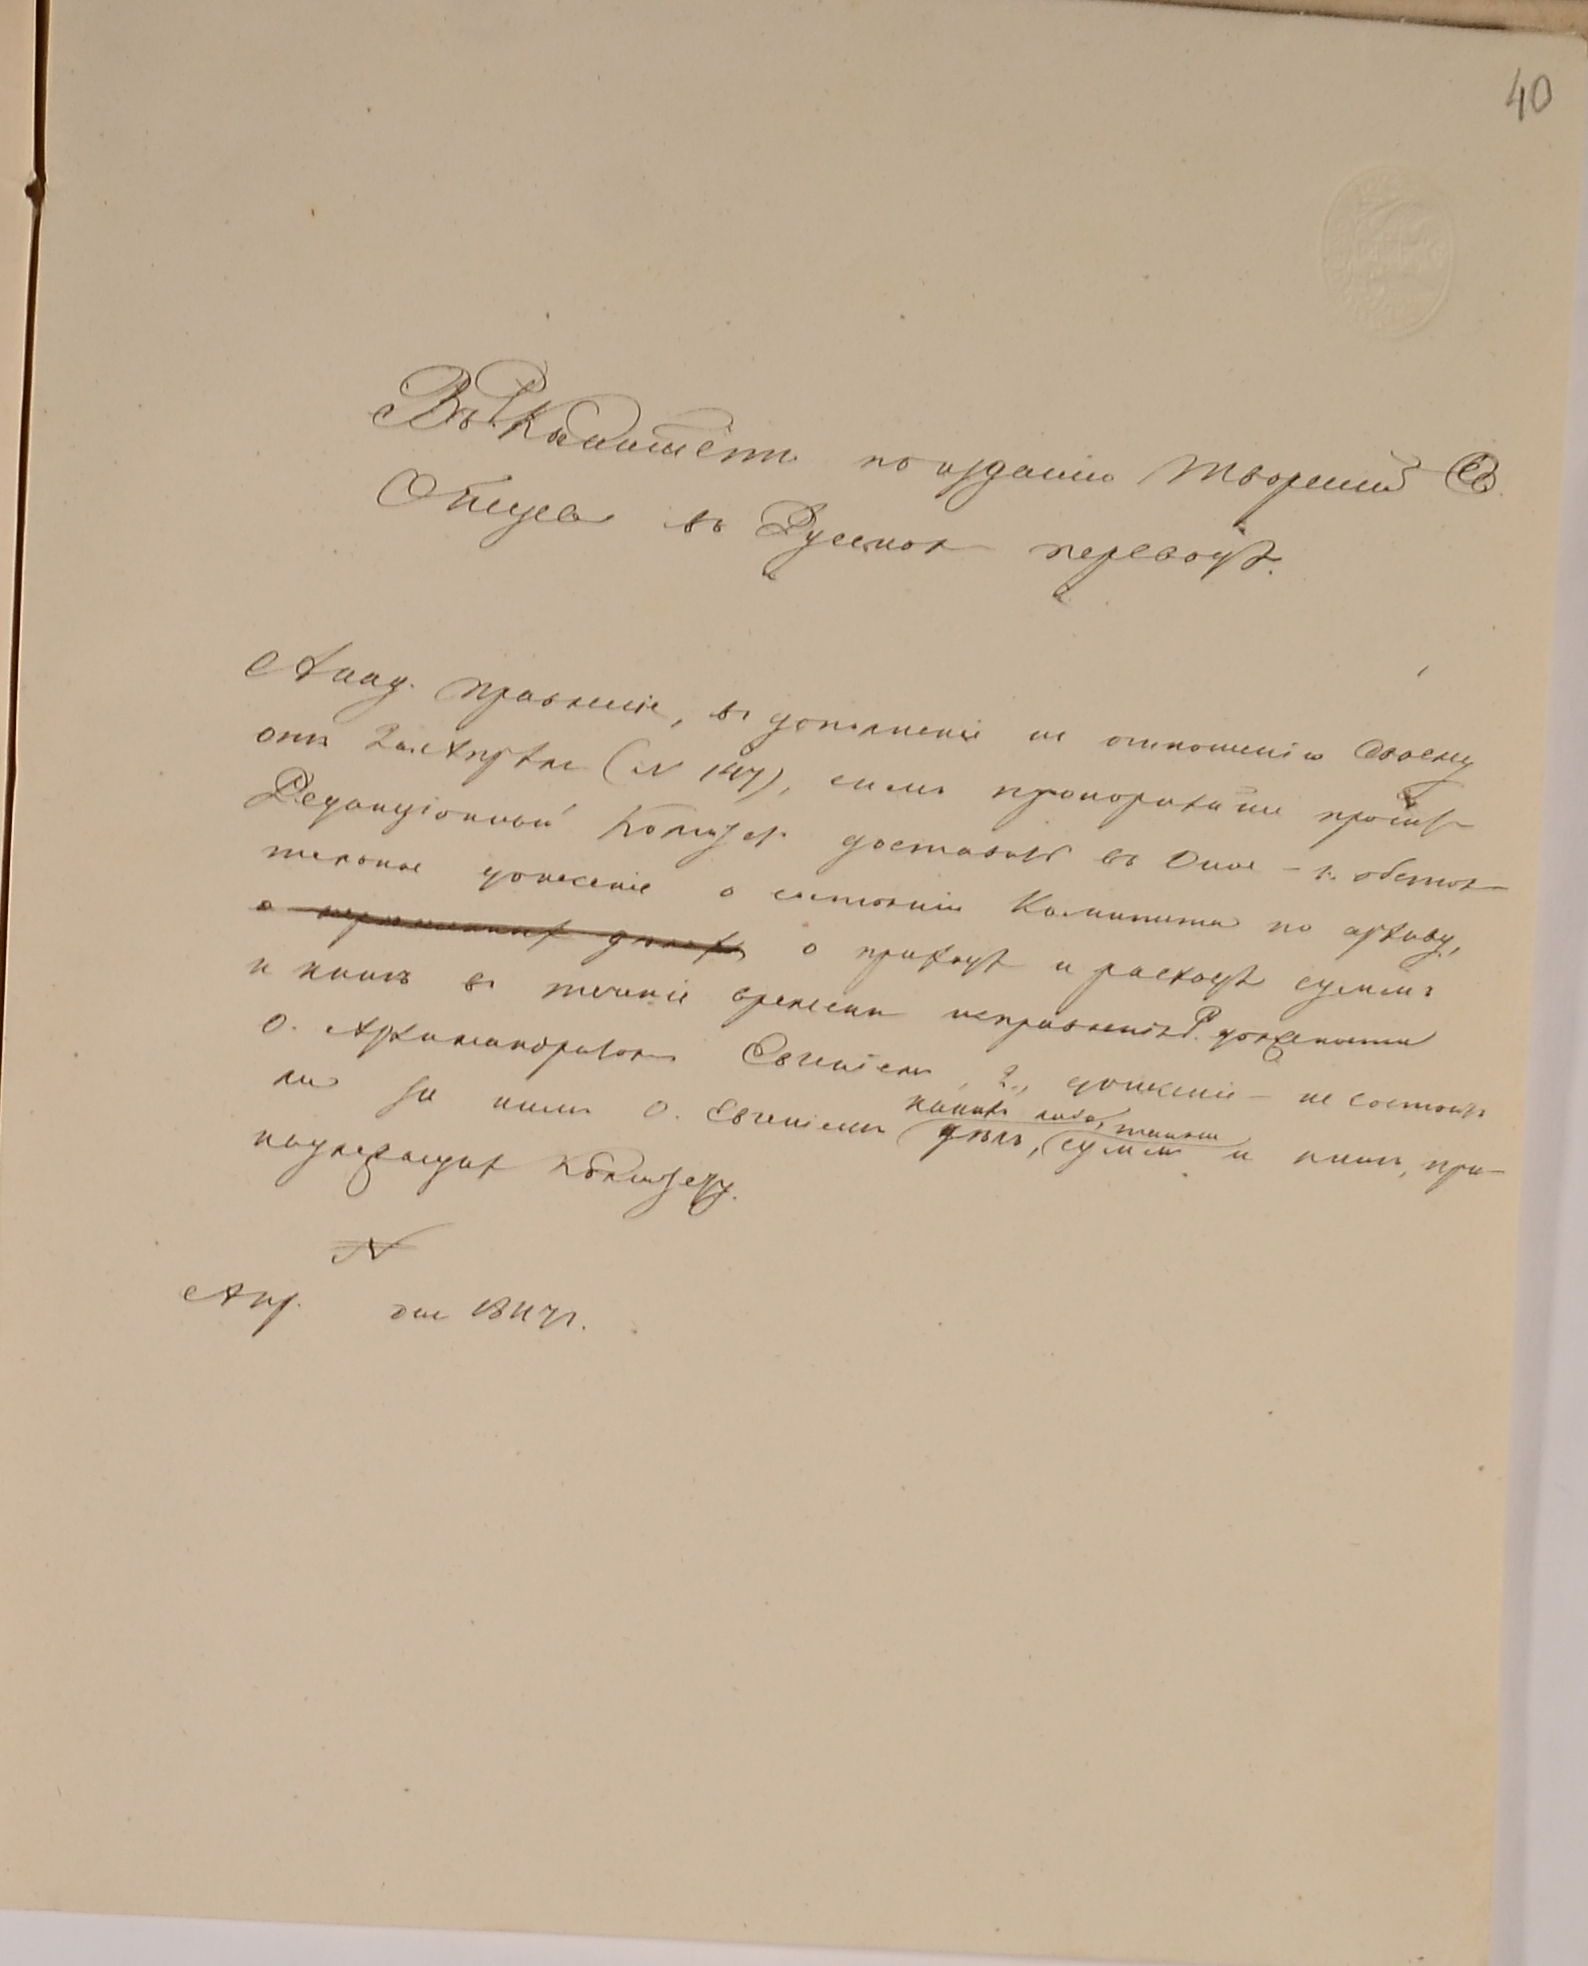 40
Въ Комитетъ по изданію Твореній Св.
Отцевъ въ Русскомъ переводѣ.
Акад. Правленіе, въ дополненіе къ отношенію своему
отъ 2 Апрѣля (N 147), симъ проситъ
Редакціонный Комитетъ доставить въ Оное – 1. обстоя-
тельное донесеніе о состояніи Комитета по архиву,
о приходѣ и расходѣ суммъ
и книгъ въ теченіе времени исправленія Р. должности
О. Архимандритомъ Евгеніемъ, 2., донесеніе – не состоитъ
ли за нимъ О. Евгеніемъ дѣлъ, суммъ и книгъ, при-
какихъ либо
надлежащихъ Комитету.
N
Апр. дня 1847 г.